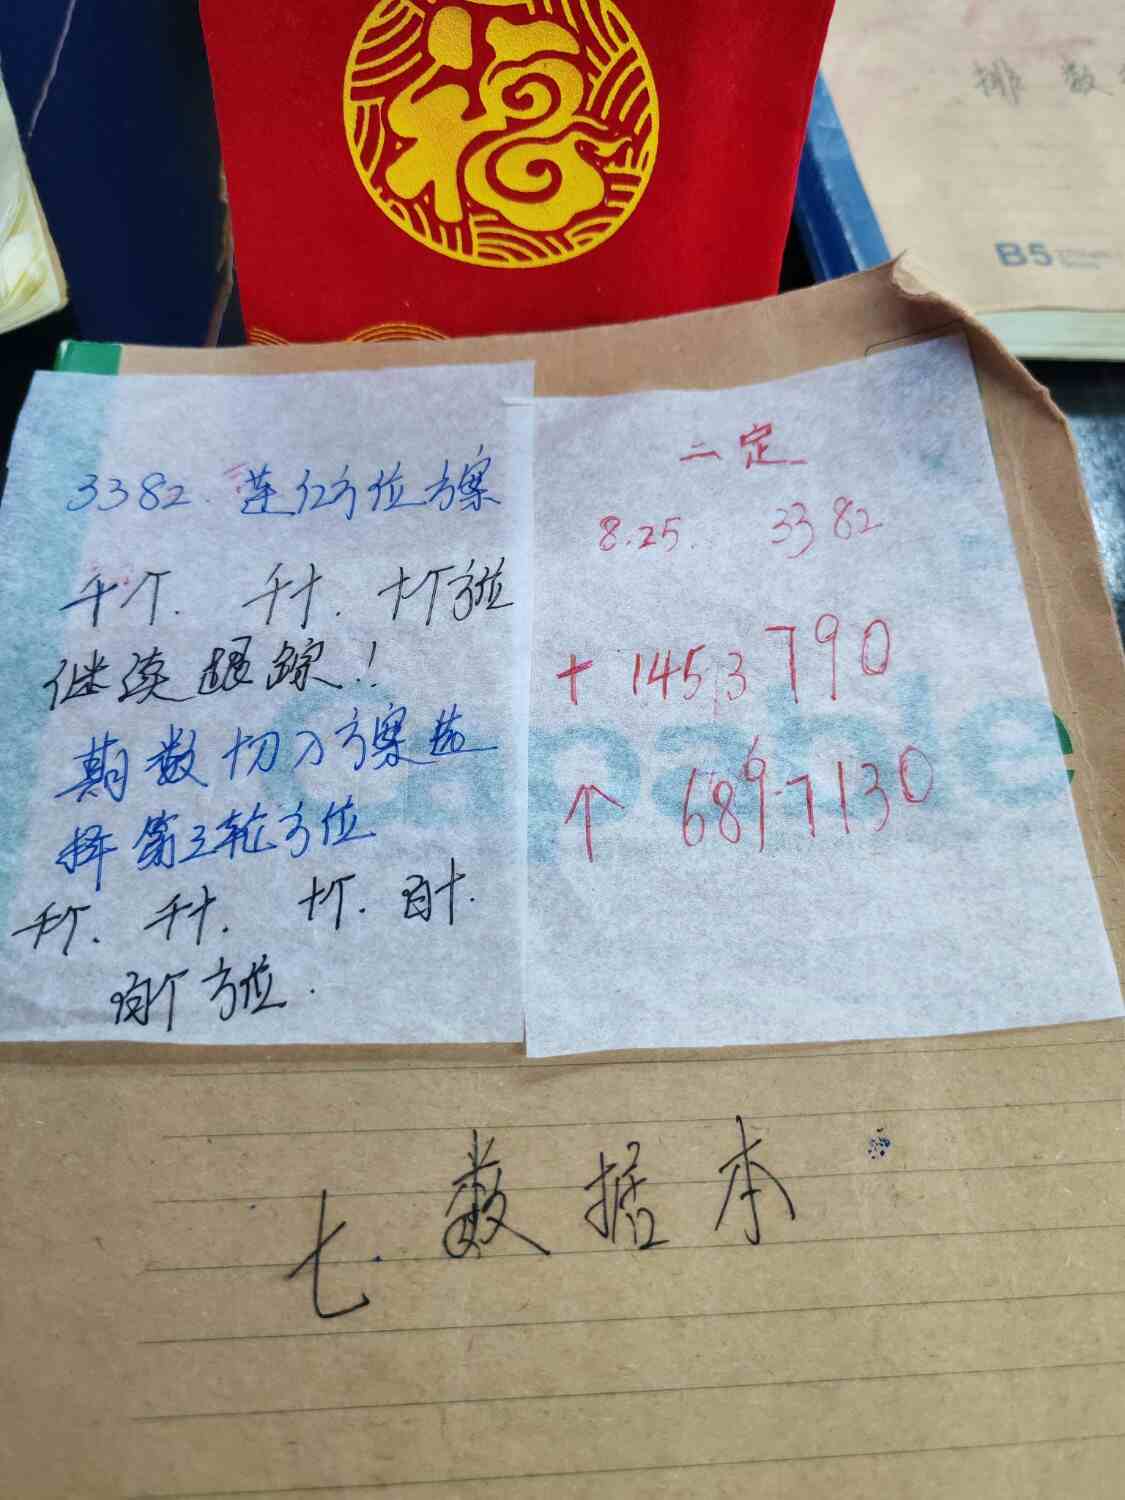 福
排 数
B5
3382. 莲红方位方案
千个. 千十. 十个方位
继续跟踪!
期数切刀方案选
择第三轮方位
千个. 千十. 十个. 百十.
百个方位.
二定
8.25. 3382
+ 1453 790
↑ 689 7130
Capable
七.数据本